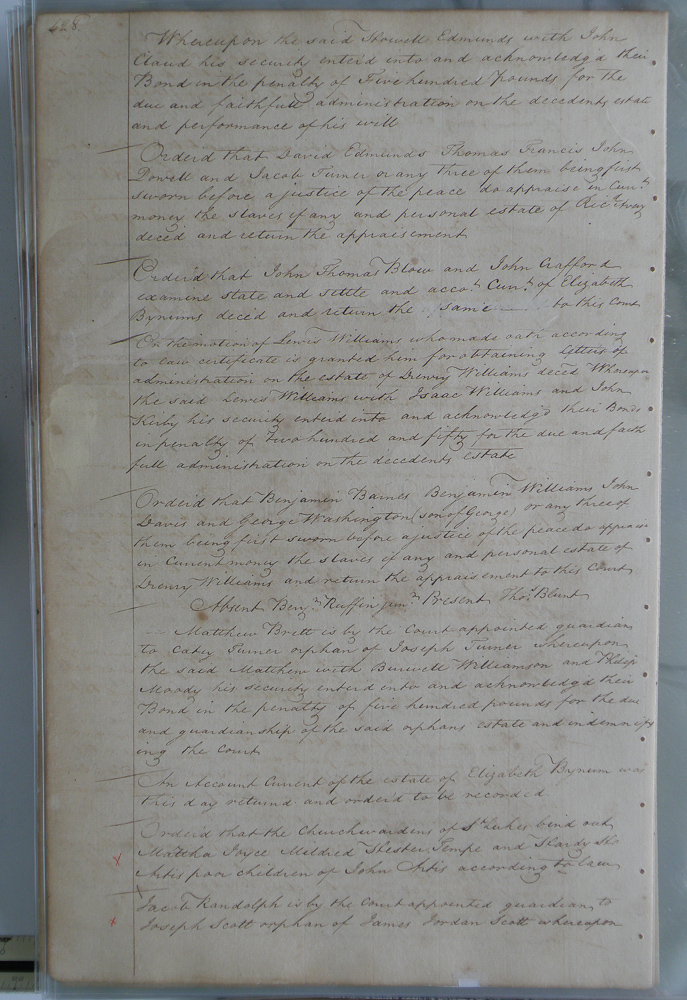 Whereupon the said Howell Edmunds with John
Claud his security enterd into and acknowledg'd their
Bond in the penalty of Five hundred pounds for the
due and faithfull administration on the decedents estate
and performance of his will
Orderd that David Edmunds Thomas Francis John
Powell and Jacob Turner or any three of them being first
sworn before a justice of the peace do appraise in Curr.t
money the slaves if any and personal estate of Ric.d
deced and return the appraisement
Orderd that John Thomas Blow and John Crafford
examine state and settle and acco.t Curr.t of Elizabeth
Bynums deced and return the same to this Court
On the motion of Lewis Williams who made oath according
to law certificate is granted him for obtaining letters of
administration on the estate of Drewry Williams deced Whereupon
the said Lewis Williams with Isaac Williams and John
Kirby his security enterd into and acknowledg'd their Bond
in penalty of Two hundred and fifty for the due and faith
full administration on the decedents estate
Orderd that Benjamin Barnes Benjamin Williams John
Davis and George Washington (son of George) or any three of
them being first sworn before a justice of the peace do appraise
in Current money the slaves if any and personal estate of
Drewry Williams and return the appraisement to this Court
Absent Benj.n Ruffin jun.r Present Tho.s Blunt
Matthew Brett is by the Court appointed guardian
to Catey Turner orphan of Joseph Turner Whereupon
the said Matthew with Burwell Williamson and Philip
Moody his security enterd into and acknowledgd their
Bond in the penalty of five hundred pounds for the due
and guardianship of the said orphans estate and indemnify
ing the Court
An Account Current of the estate of Elizabeth Bynum was
this day returnd and orderd to be recorded
Orderd that the Churchwardens of S.t Lukes bind out
Martha Joyce Mildred Hester Tempe and Hardy
Artis poor children of John Artis according to law
Jacob Randolph is by the Court appointed guardian to
Joseph Scott orphan of James Jordan Scott whereupon